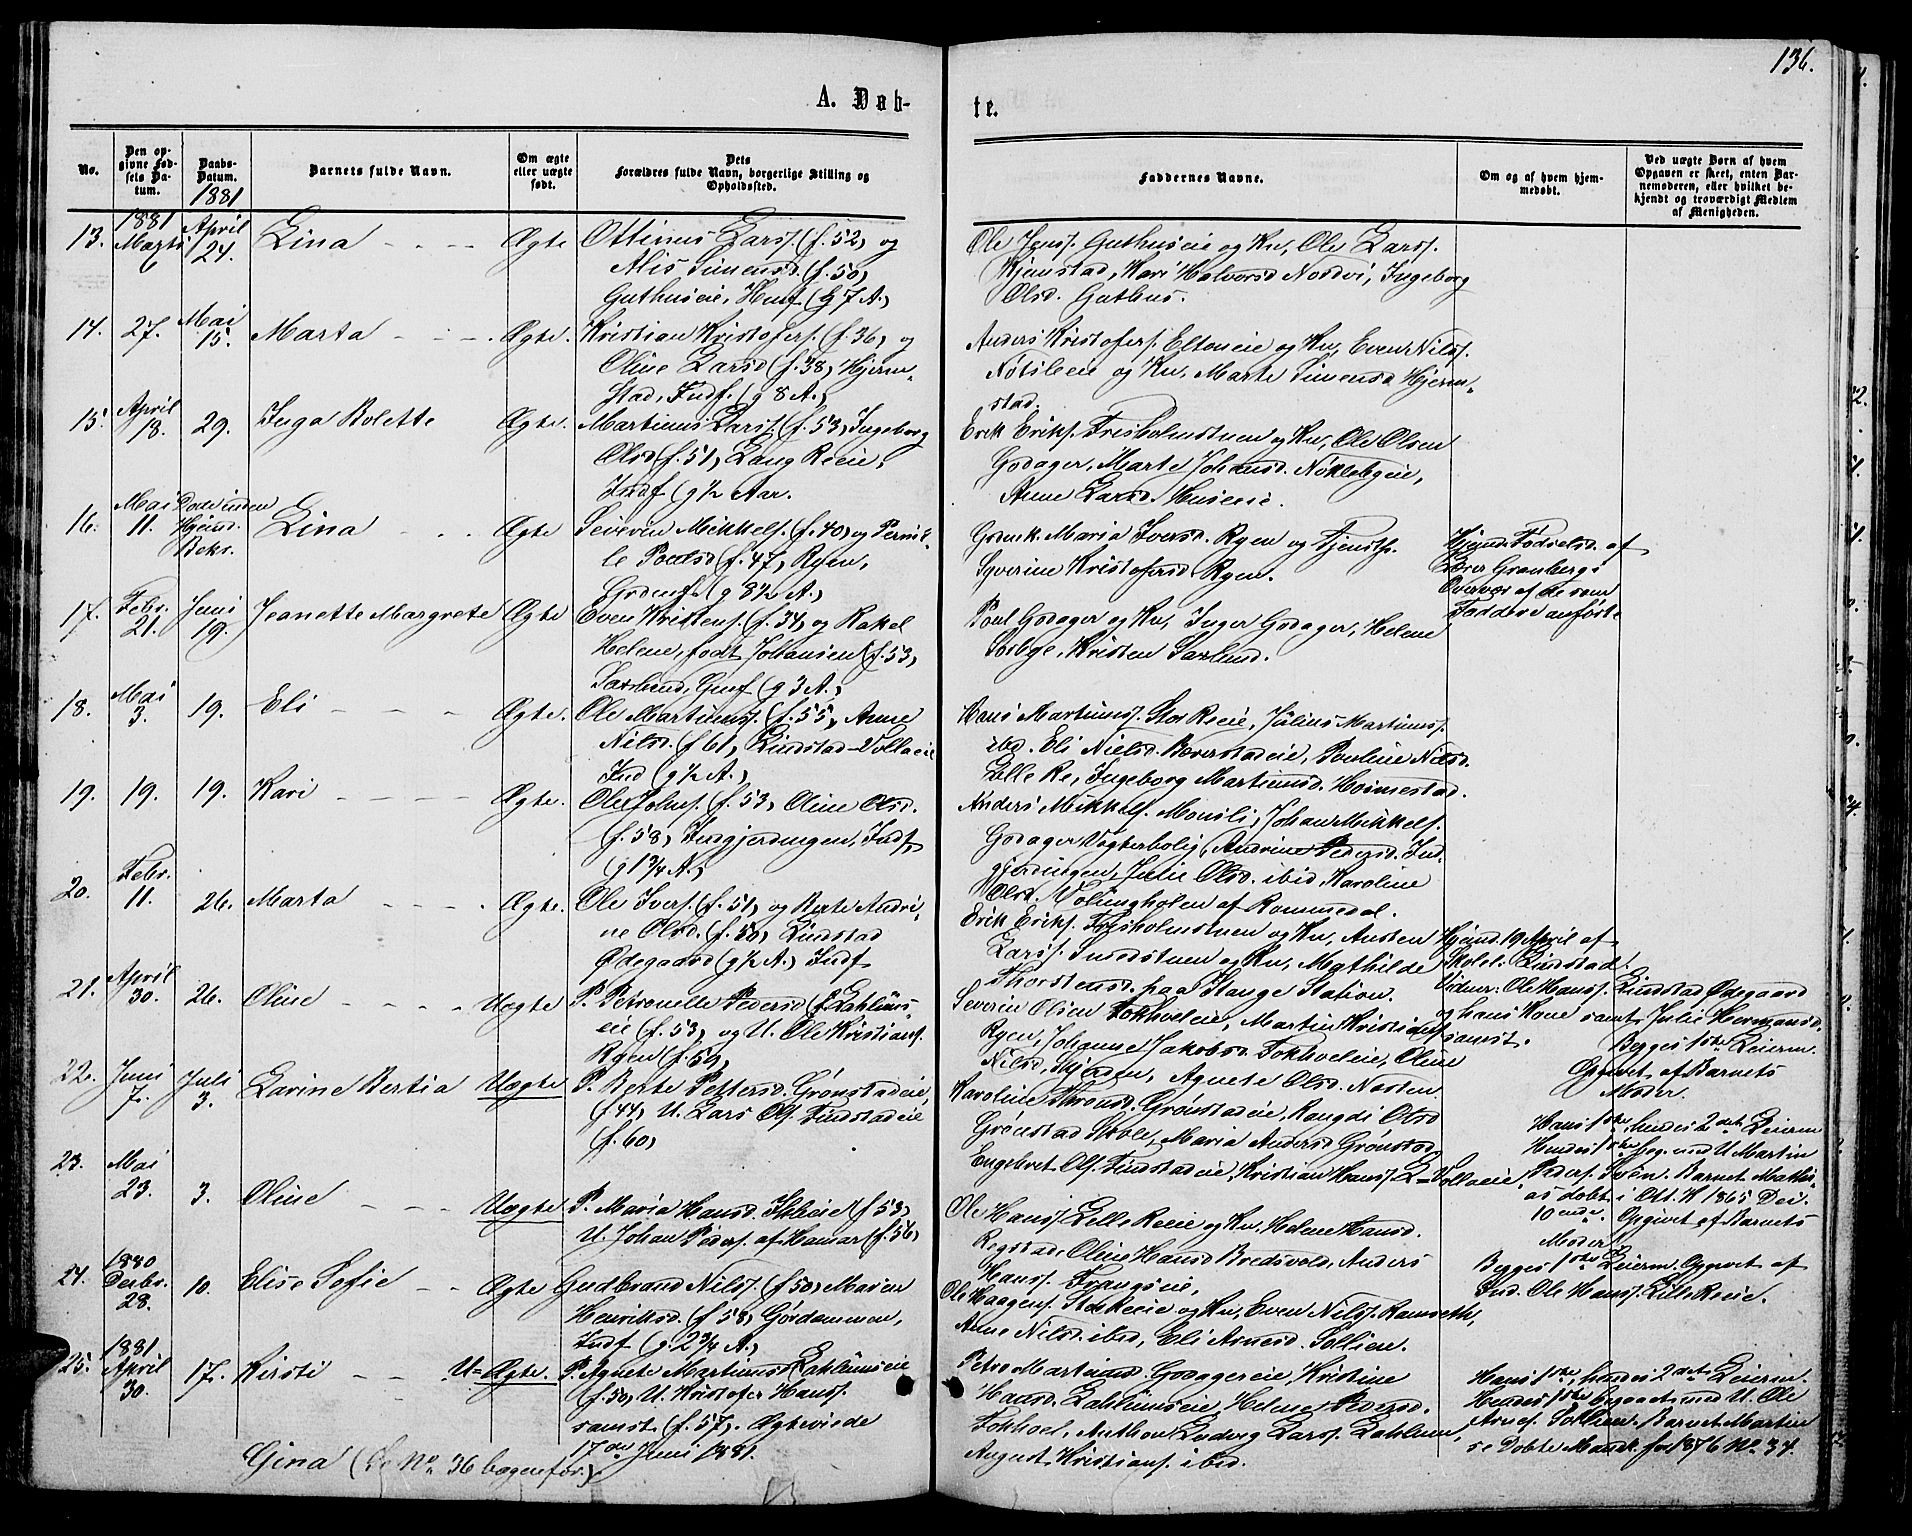 136.
A. Døb-
te.
No.
Den op-
givne Fød-
sels Da-
tum.
Daabs-
Datum.
1881
Barnets fulde Navn.
Om ægte
eller uægte
født.
Dets
Forældres fulde Navn, borgerlige Stilling og
Opholdssted.
Faddernes Navne.
Om og af hvem hjem-
medøbt.
Ved uægte Børn af hvem
Opgaven er skeet, enten Bar-
nemoderen, eller hvilket be-
kjendt og troværdigt Medlem
af Menigheden.
13. 1881 Marts 6 April 24. Lina Ægte Ottinus Larss. (f. 52) og
Alis Simensd. (f. 50)
Guthuseie, Husf (g 7 A.)
Ole Jenss. Guthuseie og Kv, Ole Larss.
Kjemstad, Kari Halvorsd Nordvi, Ingeborg
Olsd. Guthus.
14. 27. Mai 15. Marta Ægte. Kristian Kristofers. (f. 36) og
Oline Larsd (f. 38) Hjerm-
stad, Indf. (g 8 A.)
Anders Kristofers. Eltoneie og Kv, Even Nilss.
Nötsleeie og Kv, Marte Simensd Hjerm-
stad.
15. April 18. 29. Inga Bolette Ægte. Martinus Larss. (f. 53) Ingeborg
Olsd (f. 51) Lang Reeie,
Indf (g ½ Aar.
Erik Eriks. Frisholmstuen og Kv, Ole Olsen
Godager, Marte Johansd. Nöklebyeie,
Anne Larsd. Huseeie.
16. Mai 11. Döde inden Hjemd. Bekr. Lina Ægte Severin Mikkels. (f. 40) og Pernil-
le Poulsd (f. 47) Ryen,
Grdenf. (g 8½ A.)
Grdmk. Maria Iversd. Ryen og Tjenstp.
Syverine Kristofersd Ryen.
Hjemd. Fødselsd. af
Lærer Granbergs
Overvær af de som
Faddere anførte
17. Febr. 21. Juni 19. Jeanette Margrete Ægte Even Kristens. (f. 34) og Rakel
Helene, født Johansen (f. 53)
Saxlund, Grdf (g 3 A.)
Poul Godager og Kv, Inger Godager, Helene
Sörbye, Kristen Saxlund.
18. Mai 3. 19. Eli Ægte. Ole Martinuss. (f. 55) Anne
Nilsd. (f 61) Lindstad-Vollaeie
Ind (g ½ A.)
Hans Martinuss. Stor Reeie, Julius Martinuss.
ibd. Eli Nielsd. Bæverstadeie, Pauline Nilsd.
Lille Re, Ingeborg Martinusd. Hormestad.
19. 19. 19. Kari Ægte. Ole Johns. (f. 53) Oline Olsd.
(f. 58) Indgjerdingen, Indf,
(g 1¾ A.)
Anders Mikkels. Monsli, Johan Mikkels.
Godager Vogterbolig, Andrine Pedersd. Ind-
gjerdingen, Julie Olsd. ibid. Karoline
Olsd. Volungholen af Rommedal.
20. Febr. 11. 26. Marta Ægte. Ole Ivers. (f. 51) og Berte Andri-
ne Olsd. (f. 50) Lindstad
Ødegaard (g ½ A.) Indf
Erik Eriks. Frisholmstuen og Kv, Austen
Larss. Sundstuen og Kv, Mathilde
Thorstensd. paa Stange Station.
Hjemd. 19 April af
Skolel. Lindstad.
Vidner: Ole Hanss. Lindstad Ødegaard
og hans Kone samt Julie Hermansd.
samst.
21. April 30. 26. Oline Uægte P. Petronelle Pedersd (f. Zahlins-
eie (f. 53) og U. Ole Kristians.
Ryen (f. 59)
Severin Olsen Tokhveleie, Martin Kristians
Ryen, Johanne Jakobsd. Tokhveleie, Oline
Nilsd. Skjerden, Agnete Olsd. Norsten
Begges 1ste Leierm.
Opgivet af Barnets
Moder.
22. Juni 7. Juli 3. Larine Bertia Uægte P. Berte Pettersd. Grönstadeie,
(f 44) U. Lars Ols. Findstadeie
(f. 60)
Karoline Thronsd. Grönstadeie, Rangdi Olsd
Grönstad Skole, Maria Andersd. Grönstad
Engebret Ols. Findstadeie, Kristian Hanss. L-Vollaeie,
Hans 1ste, hendes 2det Leierm
Hendes 1ste beg. med U. Martin
Peders. Svén. Barnet Mathi-
as döbt i Ott. K 1865 Dei.
10ende. Opgivet af Barnets
Moder
23. Mai 23. 3. Oline Uægte P. Maria Hansd. (f 53)
U. Johan Peders. af Hamar (f. 56)
Ole Hanss. Lille Reeie og Kv. Helene Hansd.
Regstad, Oline Hansd Bredsvold, Anders
Hanss. Frangseie,
Begges 1ste Leierm. Opgivet af
Ind. Ole Hanss. Lille Reeie.
24. 1880 Decbr. 28. 10. Elise Sofie Ægte Gudbrand Nilss. (f 50) Maren
Henriksd. (f 58) Gördammen,
Indf (g 2¾ A.)
Ole Haagens. Stor Reeie og Kv, Even Nilss. Ramseth,
Anne Nilsd. ibid, Eli Arnesd. Sollien.
25. 1881 April 30. 17. Kirsti U-Ægte. P. Agnete Martinusd. Zakkiuseie
(f. 50) U. Kristofer Hanss.
samst. (f. 57). Ægteviede
17de Juni 1881.
Petro Martinusd. Godagereie, Kristine
Hansd. Zakkiuseie, Helene Pedersd.
Tokhoel, Anthon Ludvig Larss. Zahlun,
August Kristians. ibid.
Hans 1ste, hendes 2det Leierm.
Hendes 1ste begaaet med U. Ole
Arnes. Sollien. Barnet Martin
se Döbte Mandk. for 1876 No. 34.
Gina (Se No. 36 bagenefor.)